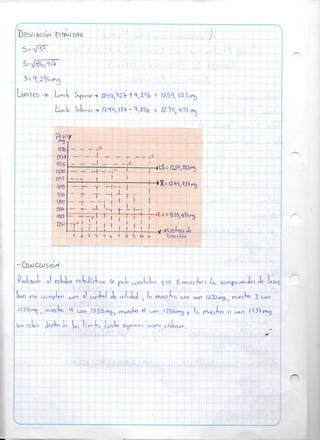 DESVIACIÓN ESTÁNDAR
S=√S²
S=√86,417
S= 9,296mg
LÍMITES → Límite Superior → 1244,727 + 9,296 = 1254,023mg
Límite Inferior → 1244,727 - 9,296 = 1235,431mg
LS = 1254,023mg
X̄ = 1244,727mg
LI = 1235,431mg
1 2 3 4 5 6 7 8 9 10 11
- CONCLUSIÓN
Realizado el estudio estadístico se pudo constatar que 5 muestras de comprimidos de
no cumplen con el control de calidad, la muestra uno con 1230mg, muestra 3 con
muestra 4 con 1255mg, muestra 8 con 1256mg y la muestra 11 con 1257mg
no están dentro de los límites tanto superior como inferior.